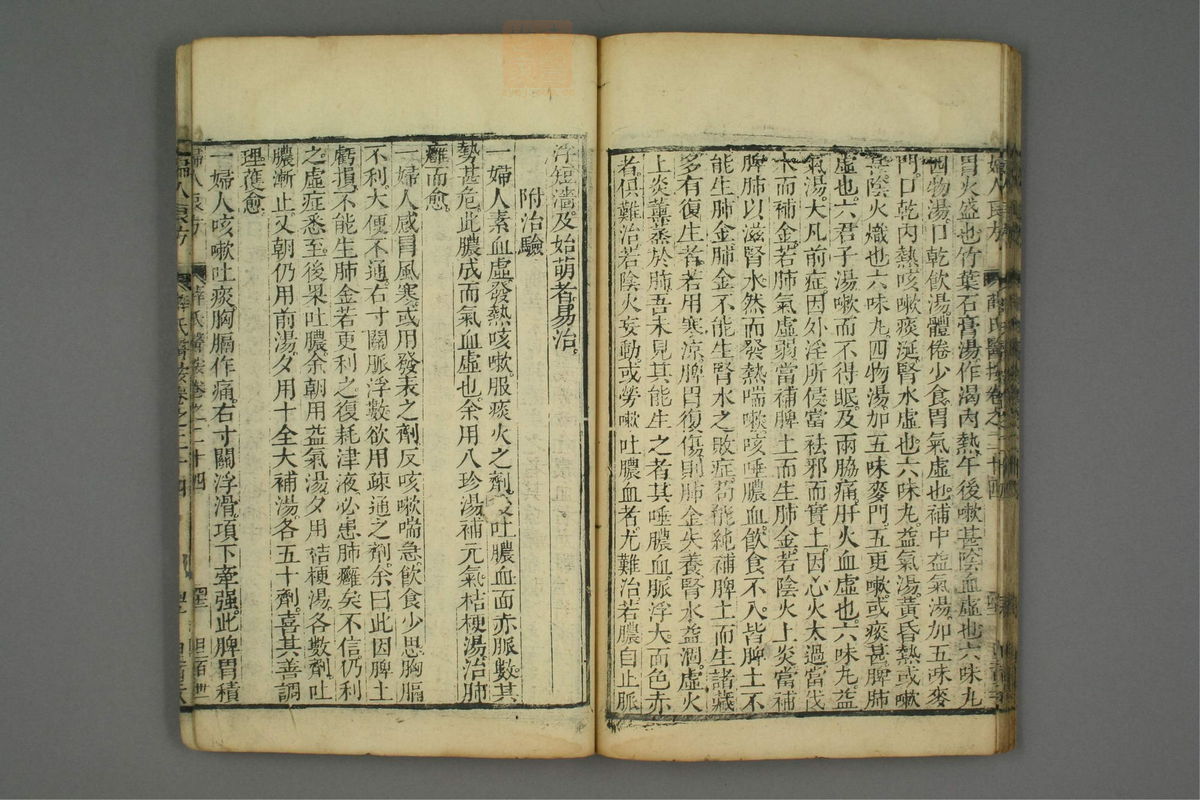 胃火盛也竹葉石膏湯作渴內熱午後嗽甚陰血虛也六味丸
四物湯口乾飲湯體倦少食胃氣虛也補中益氣湯加五味麥
門口乾內熱咳嗽痰涎腎水虛也六味丸益氣湯黃昏熱或嗽
甚陰火熾也六味丸四物湯加五味麥門五更嗽或痰甚脾肺
虛也六君子湯嗽而不得眠及兩脇痛肝火血虛也六味丸益
氣湯大凡前症因外淫所侵當祛邪而實土因心火太過當伐
木而補金若肺氣虛弱當補脾土而生肺金若陰火上炎當補
脾肺以滋腎水然而發熱喘嗽咳唾膿血飲食不入皆脾土不
能生肺金肺金不能生腎水之敗症苟能純補脾土而生諸藏
多有復生者若用寒涼脾胃復傷則肺金失養腎水益涸虛火
上炎薰蒸於肺吾未見其能生之者其唾膿血脈浮大而色赤
者俱難治若陰火妄動或勞嗽吐膿血者尤難治若膿自止脈
浮短濇及始萌者易治
附治驗
一婦人素血虛發熱咳嗽服痰火之劑又吐膿血面赤脈數其
勢甚危此膿成而氣血虛也余用八珍湯補元氣桔梗湯治肺
癰而愈
一婦人感冒風寒或用發表之劑反咳嗽喘急飲食少思胸膈
不利大便不通右寸關脈浮數欲用疎通之劑余曰此因脾土
虧損不能生肺金若更利之復耗津液必患肺癰矣不信仍利
之虛症悉至後果吐膿余朝用益氣湯夕用桔梗湯各數劑吐
膿漸止又朝仍用前湯夕用十全大補湯各五十劑喜其善調
理獲愈
一婦人咳嗽吐痰胸膈作痛右寸關浮滑項下牽強此脾胃積
婦人良方 薛氏醫按卷之二十四